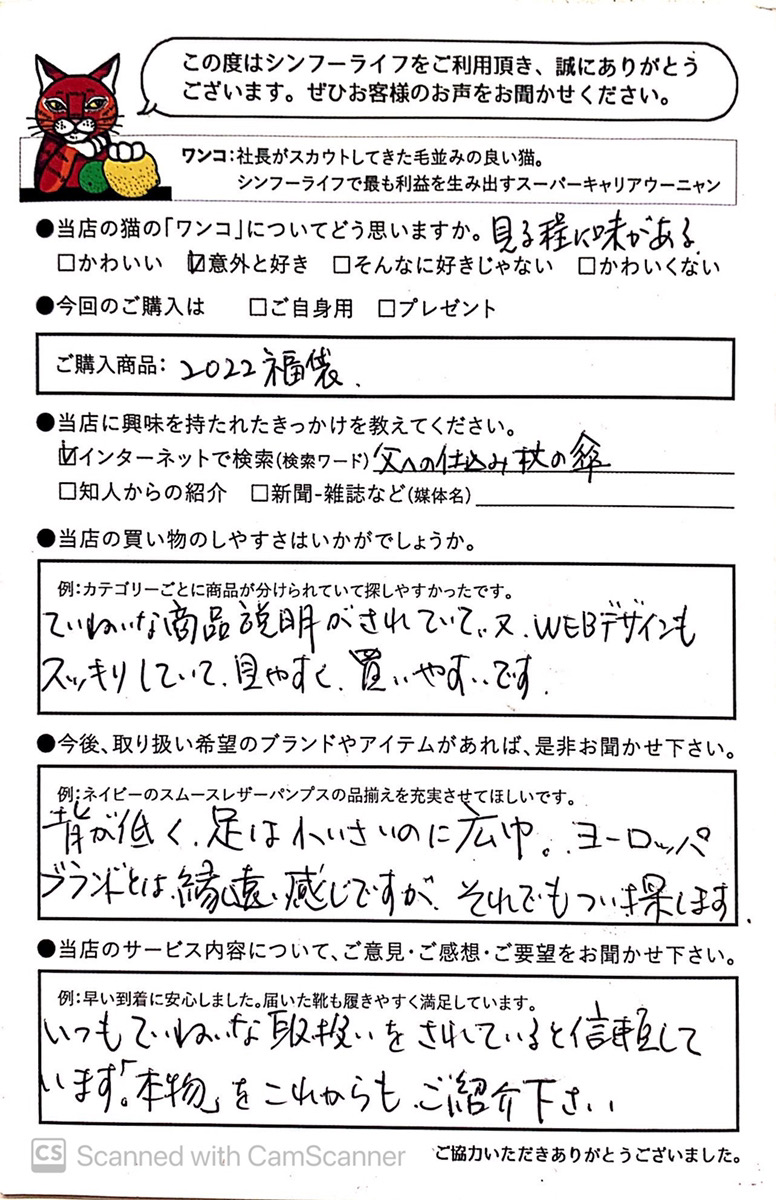 この度はシンフーライフをご利用頂き、誠にありがとう
ございます。ぜひお客様のお声をお聞かせください。
ワンコ：社長がスカウトしてきた毛並みの良い猫。
シンフーライフで最も利益を生み出すスーパーキャリアウーニャン
●当店の猫の「ワンコ」についてどう思いますか。見る程に味がある.
□かわいい ☑意外と好き □そんなに好きじゃない □かわいくない
●今回のご購入は □ご自身用 □プレゼント
ご購入商品：2022福袋.
●当店に興味を持たれたきっかけを教えてください。
☑インターネットで検索(検索ワード)父への仕込み杖の傘
□知人からの紹介 □新聞-雑誌など(媒体名)
●当店の買い物のしやすさはいかがでしょうか。
例：カテゴリーごとに商品が分けられていて探しやすかったです。
ていねいな商品説明がされていて、又、WEBデザインも
スッキリしていて、見やすく、買いやすいです.
●今後、取り扱い希望のブランドやアイテムがあれば、是非お聞かせ下さい。
例：ネイビーのスムースレザーパンプスの品揃えを充実させてほしいです。
背が低く、足は小いさいのに広巾。ヨーロッパ
ブランドとは、縁遠い感じですが、それでもつい探します.
●当店のサービス内容について、ご意見・ご感想・ご要望をお聞かせ下さい。
例：早い到着に安心しました。届いた靴も履きやすく満足しています。
いつもていねいな取扱いをされていると信頼して
います。「本物」をこれからもご紹介下さい
CS Scanned with CamScanner
ご協力いただきありがとうございました。